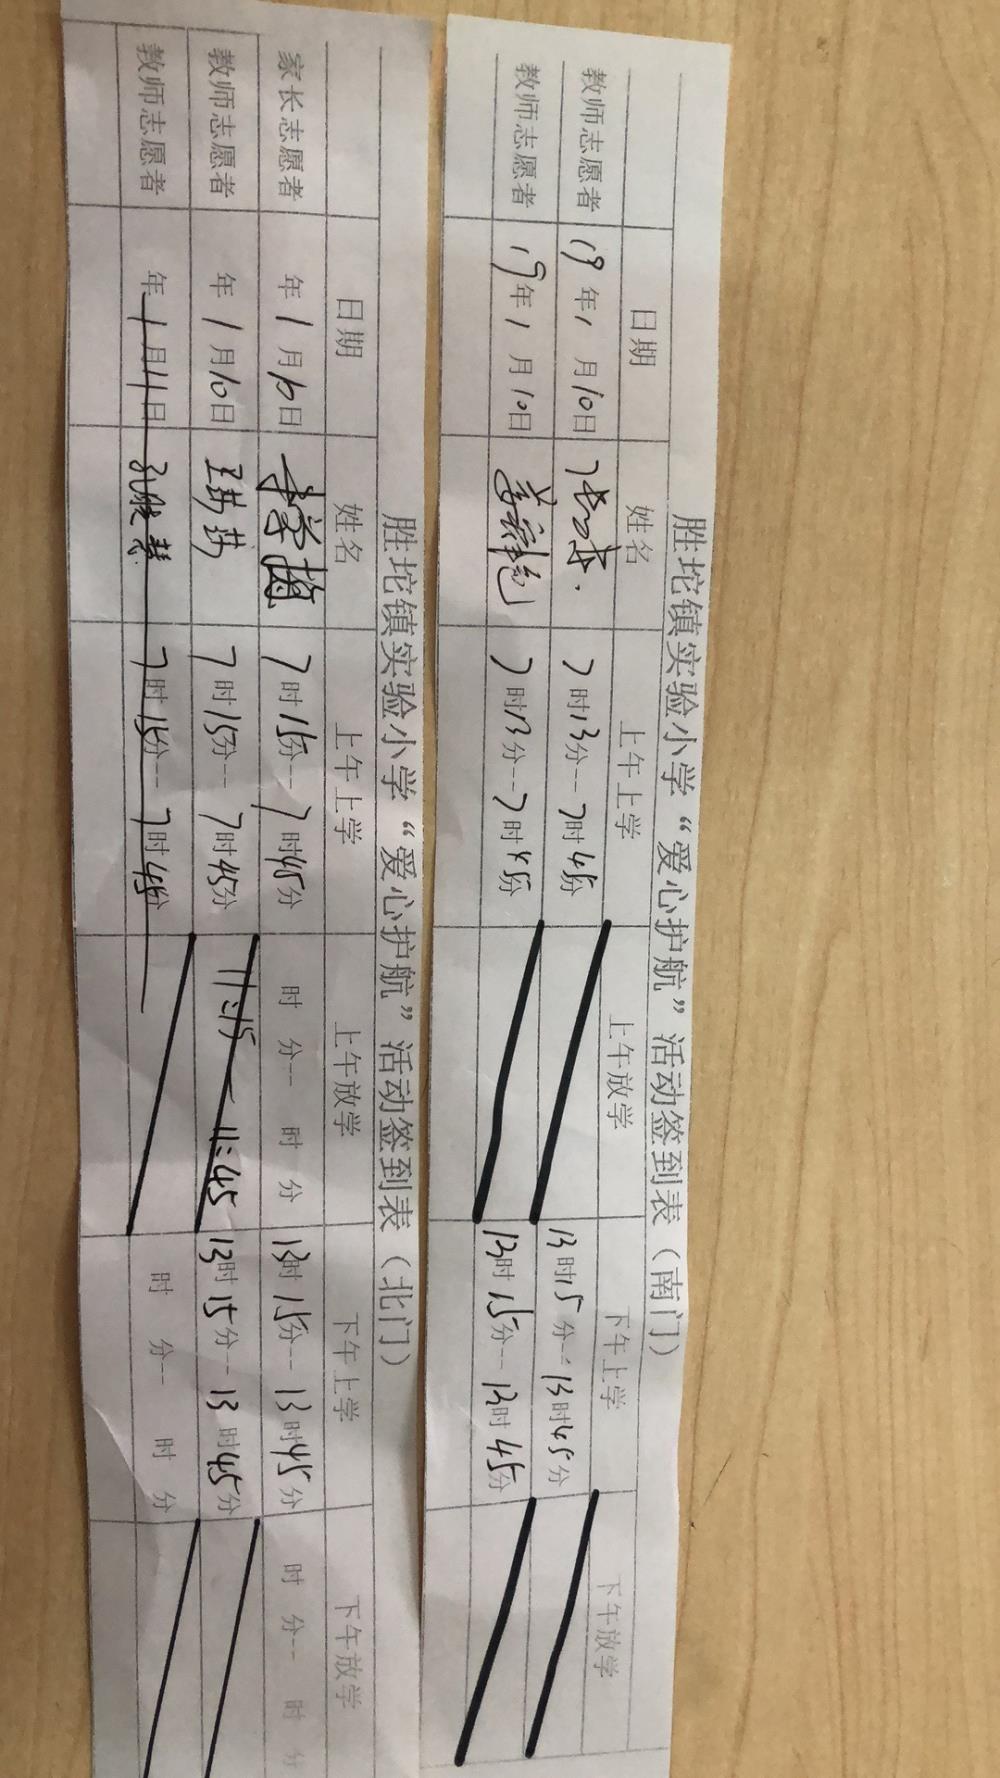 胜坨镇实验小学“爱心护航”活动签到表（南门）
日期 姓名 上午上学 上午放学 下午上学 下午放学
教师志愿者 19年1月10日 7时13分--7时45分 13时15分--13时45分
教师志愿者 19年1月10日 7时13分--7时45分 13时15分--13时45分
胜坨镇实验小学“爱心护航”活动签到表（北门）
日期 姓名 上午上学 上午放学 下午上学 下午放学
家长志愿者 年1月10日 李学梅 7时15分--7时45分 时 分-- 时 分 13时15分--13时45分 时 分-- 时 分
教师志愿者 年1月10日 7时15分--7时45分 11:15－11:45 13时15分--13时45分
教师志愿者 年1月11日 7时15分--7时45分 时 分-- 时 分